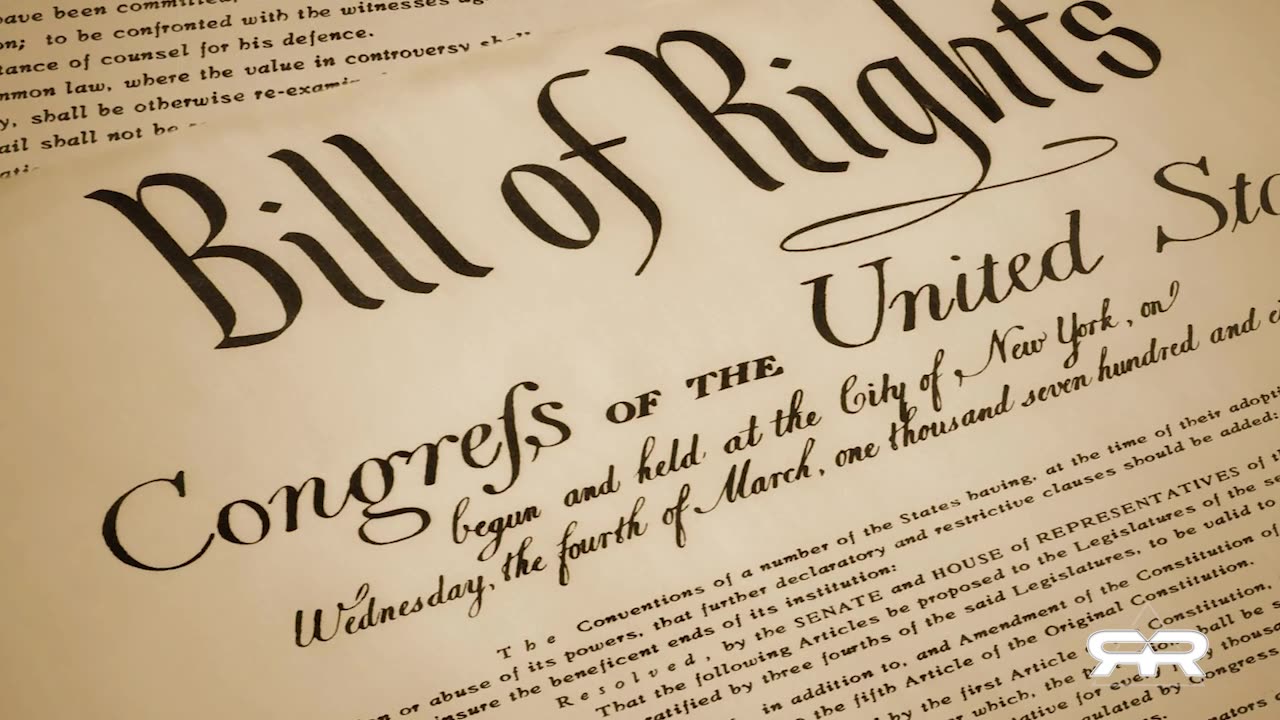 have been committed,
to be confronted with the witnesses
of counsel for his defence.
law, where the value in controversy
shall be otherwise
shall not be
Bill of Rights
Congreſs OF THE United
begun and held at the City of New York, on
Wednesday, the fourth of March, one thousand seven hundred and
The Conventions of a number of the States having, at the time of their
or abuse of its powers, that further declaratory and restrictive clauses should be added:
the beneficent ends of its institution:
Resolved, by the SENATE and HOUSE of REPRESENTATIVES of
That the following Articles be proposed to the Legislatures of the
by three fourths of the said Legislatures, to be valid to
in addition to, and Amendment of the Constitution of
the fifth Article of the Original Constitution.
by the first Article Constitution,
which, the shall be
for every
by Congress
RR